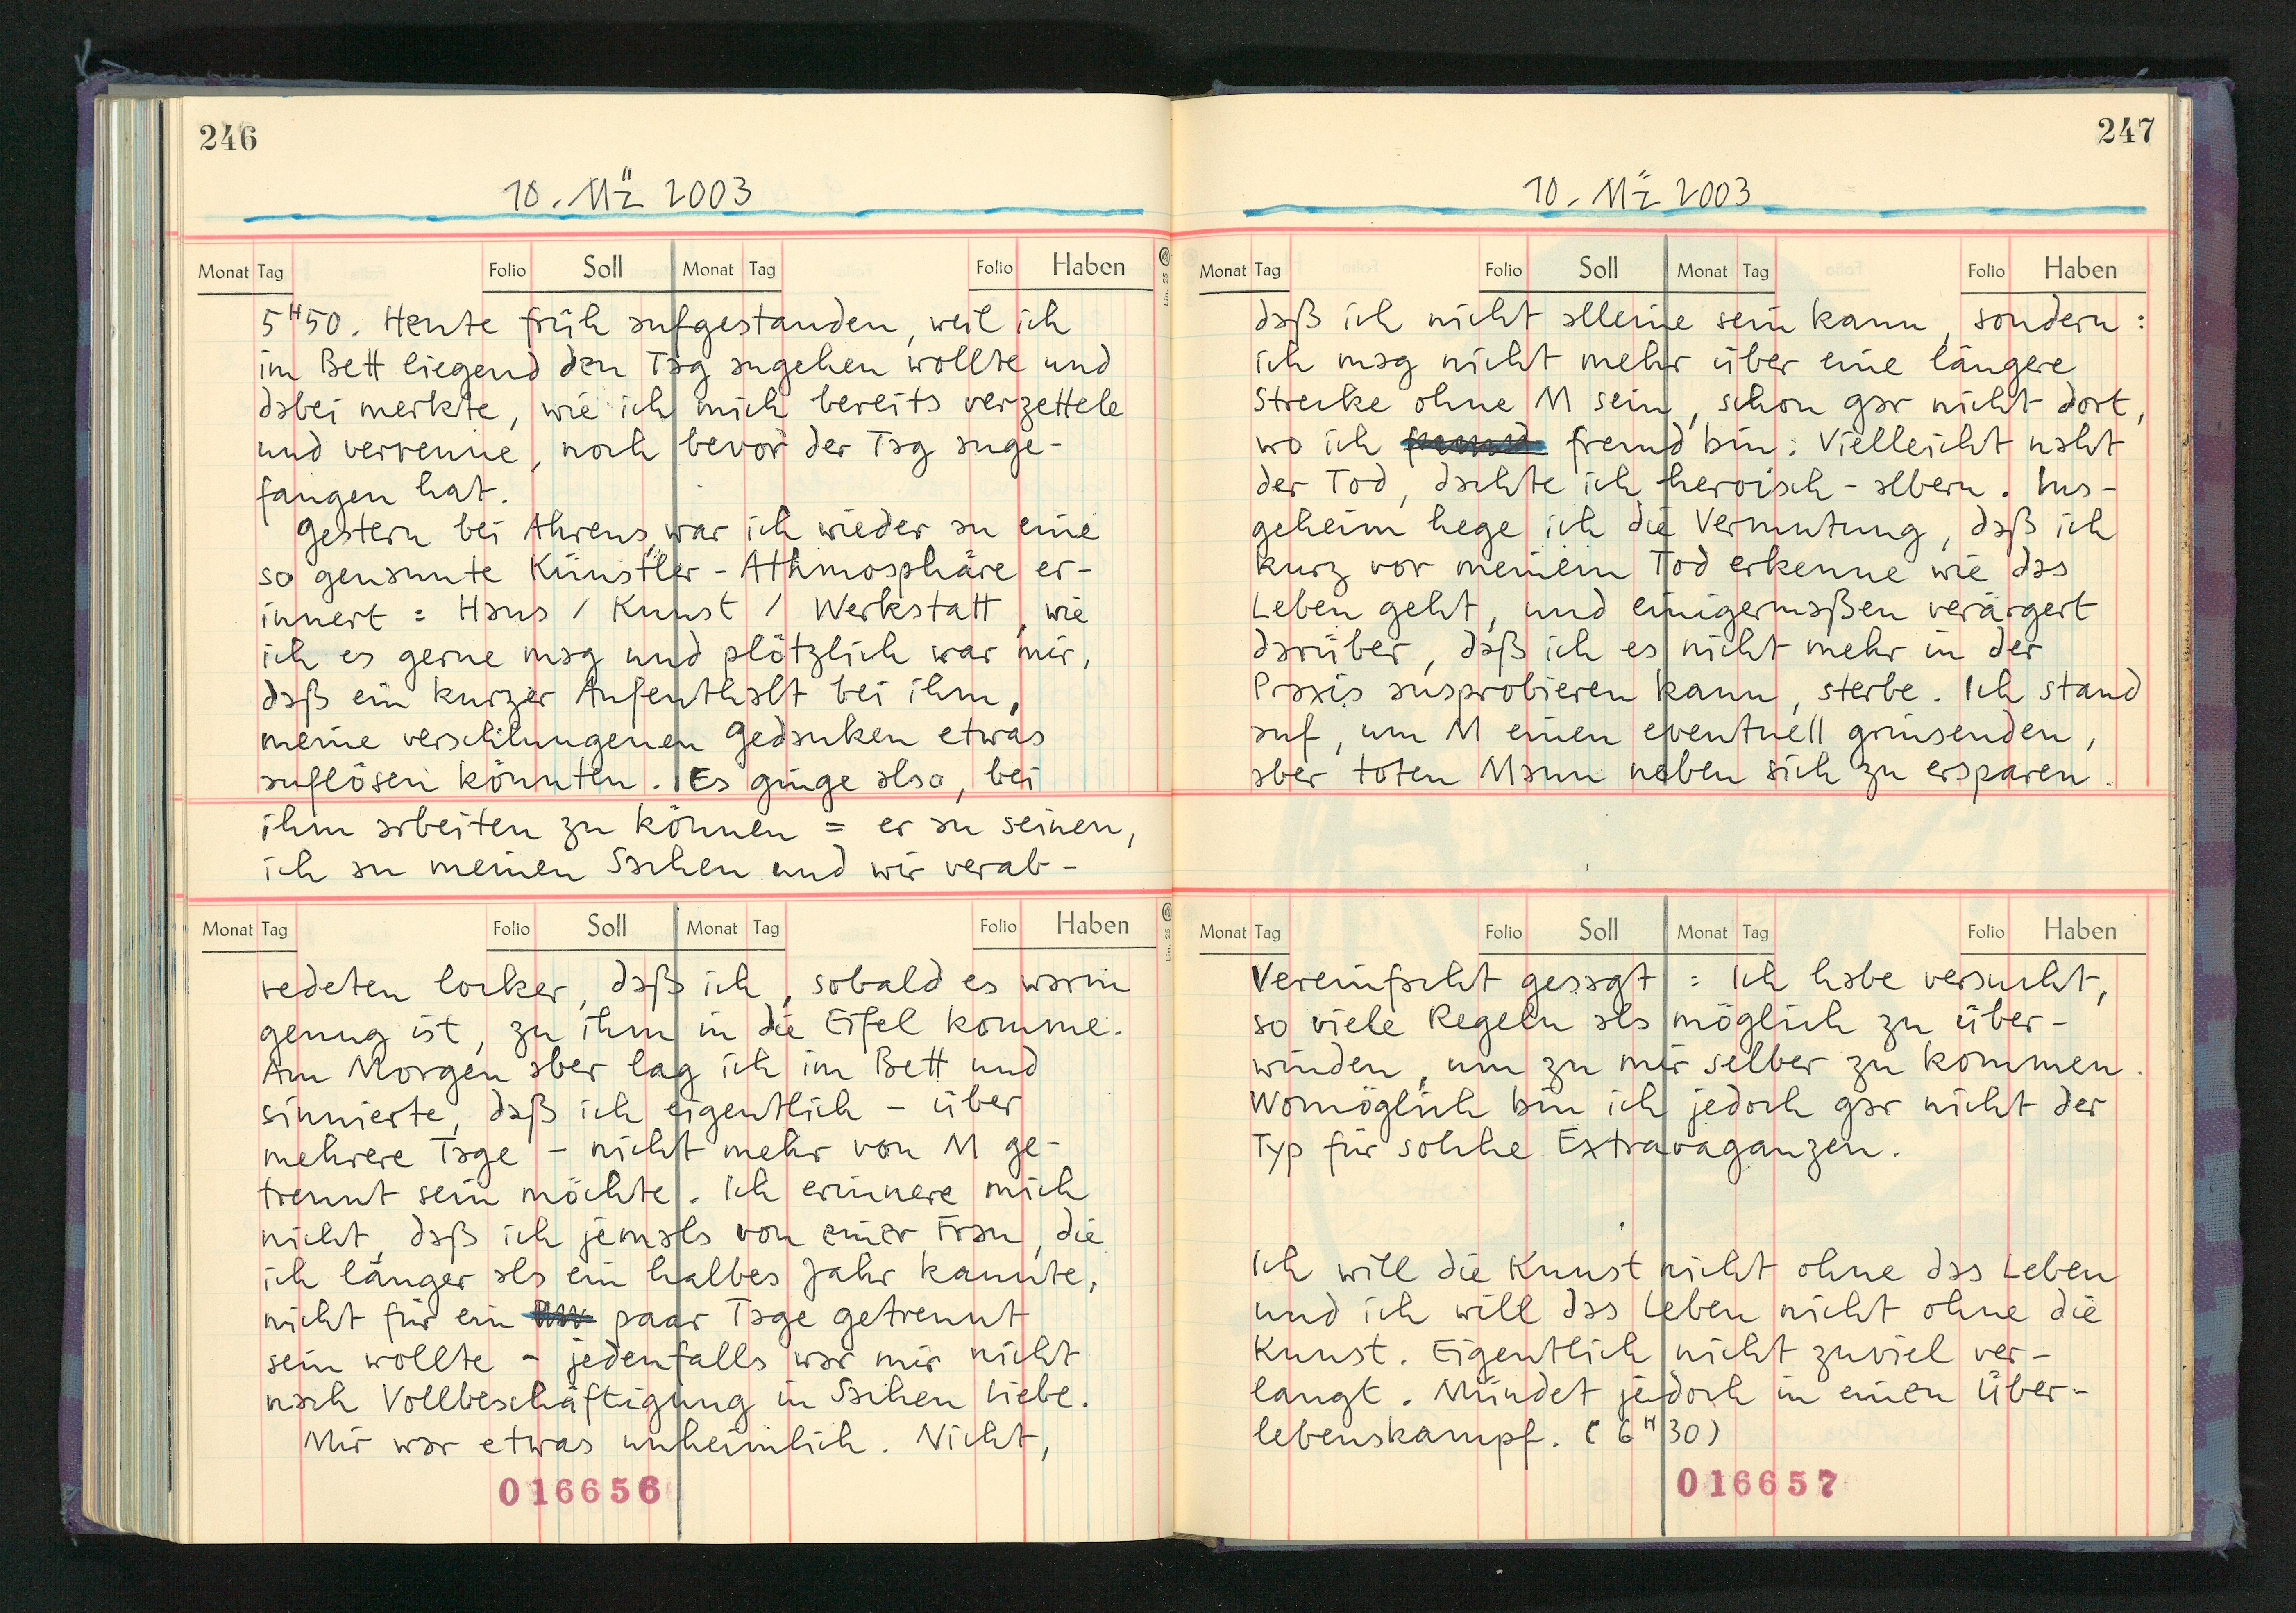 246
10. Mӓz 2003
Monat Tag Folio Soll Monat Tag Folio Haben
5H50. Heute früh aufgestanden, weil ich
im Bett liegend den Tag angehen wollte und
dabei merkte, wie ich mich bereits verzettele
und verrenne, noch bevor der Tag ange-
fangen hat.
Gestern bei Ahrens, war ich wieder an eine
so genannte Künstler-Athmosphäre er-
innert: Haus / Kunst / Werkstatt, wie
ich es gerne mag und plötzlich war mir,
daß ein kurzer Aufenthalt bei ihm,
meine verschlungenen Gedanken etwas
auflösen könnten. Es ginge also, bei
ihm arbeiten zu können = er an seinen,
ich an meinen Sachen und wir verab-
Monat Tag Folio Soll Monat Tag Folio Haben
redeten locker, daß ich, sobald es warm
genug ist, zu ihm in die Eifel komme.
Am Morgen aber lag ich im Bett und
sinnierte, daß ich eigentlich - über
mehrere Tage - nicht mehr von M ge-
trennt sein möchte. Ich erinnere mich
nicht, daß ich jemals von einer Frau, die
ich länger als ein halbes Jahr kannte,
nicht für ein paar Tage getrennt
sein wollte - jedenfalls war mir nicht
nach Vollbeschäftigung in Sachen Liebe.
Mir war etwas unheimlich. Nicht,
016656
247
10. Mäz 2003
Monat Tag Folio Soll Monat Tag Folio Haben
daß ich nicht alleine sein kann, sondern:
ich mag nicht mehr über eine längere
Strecke ohne M sein, schon gar nicht dort,
wo ich fremd bin: Vielleicht naht
der Tod, dachte ich heroisch-albern. Ins-
geheim hege ich die Vermutung, daß ich
kurz vor meinem Tod erkenne wie das
Leben geht, und einigermaßen verärgert
darüber, daß ich es nicht mehr in der
Praxis ausprobieren kann, sterbe. Ich stand
auf, um M einen eventuell grinsenden,
aber toten Mann neben sich zu ersparen.
Monat Tag Folio Soll Monat Tag Folio Haben
Vereinfacht gesagt: Ich habe versucht,
so viele Regeln als möglich zu über-
winden, um zu mir selber zu kommen.
Womöglich bin ich jedoch gar nicht der
Typ für solche Extravaganzen.
Ich will die Kunst nicht ohne das Leben
und ich will das Leben nicht ohne die
Kunst. Eigentlich nicht zuviel ver-
langt. Mündet jedoch in einen Über-
lebenskampf. (6H30)
016657